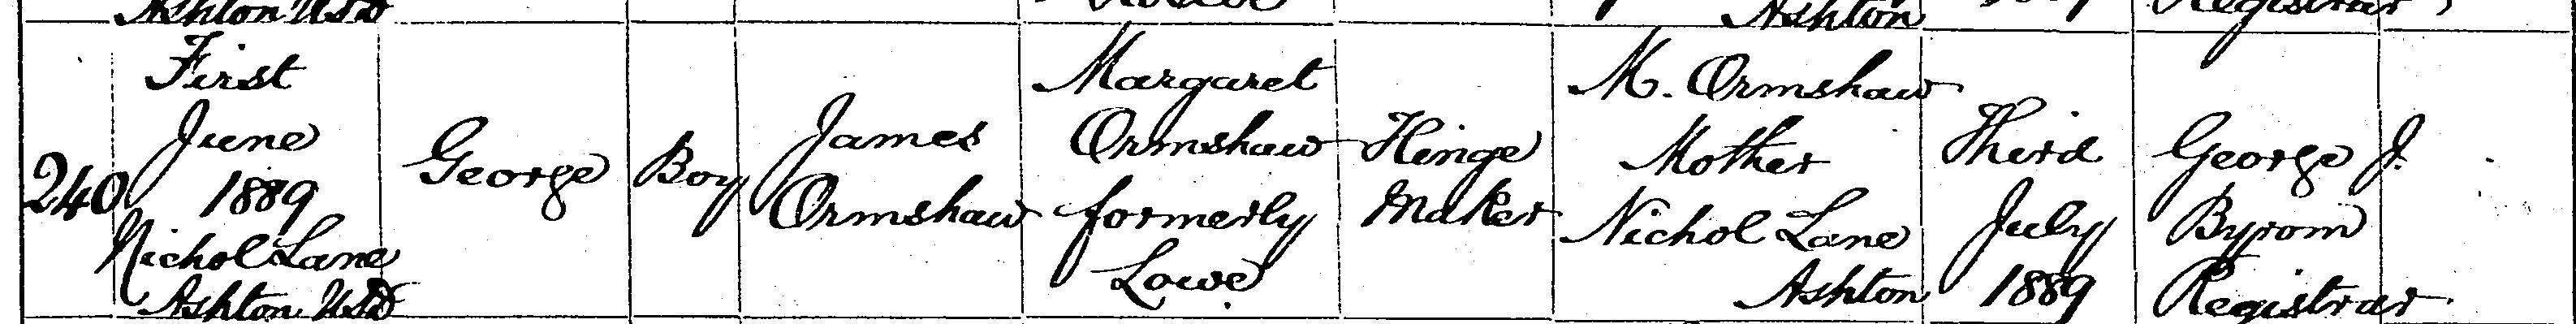 Ashton USD
Ashton
Registrar
240
First
June
1889
Nichol Lane
Ashton USD
George
Boy
James
Ormshaw
Margaret
Ormshaw
formerly
Lowe
Hinge
Maker
M. Ormshaw
Mother
Nichol Lane
Ashton
Third
July
1889
George J.
Byrom
Registrar